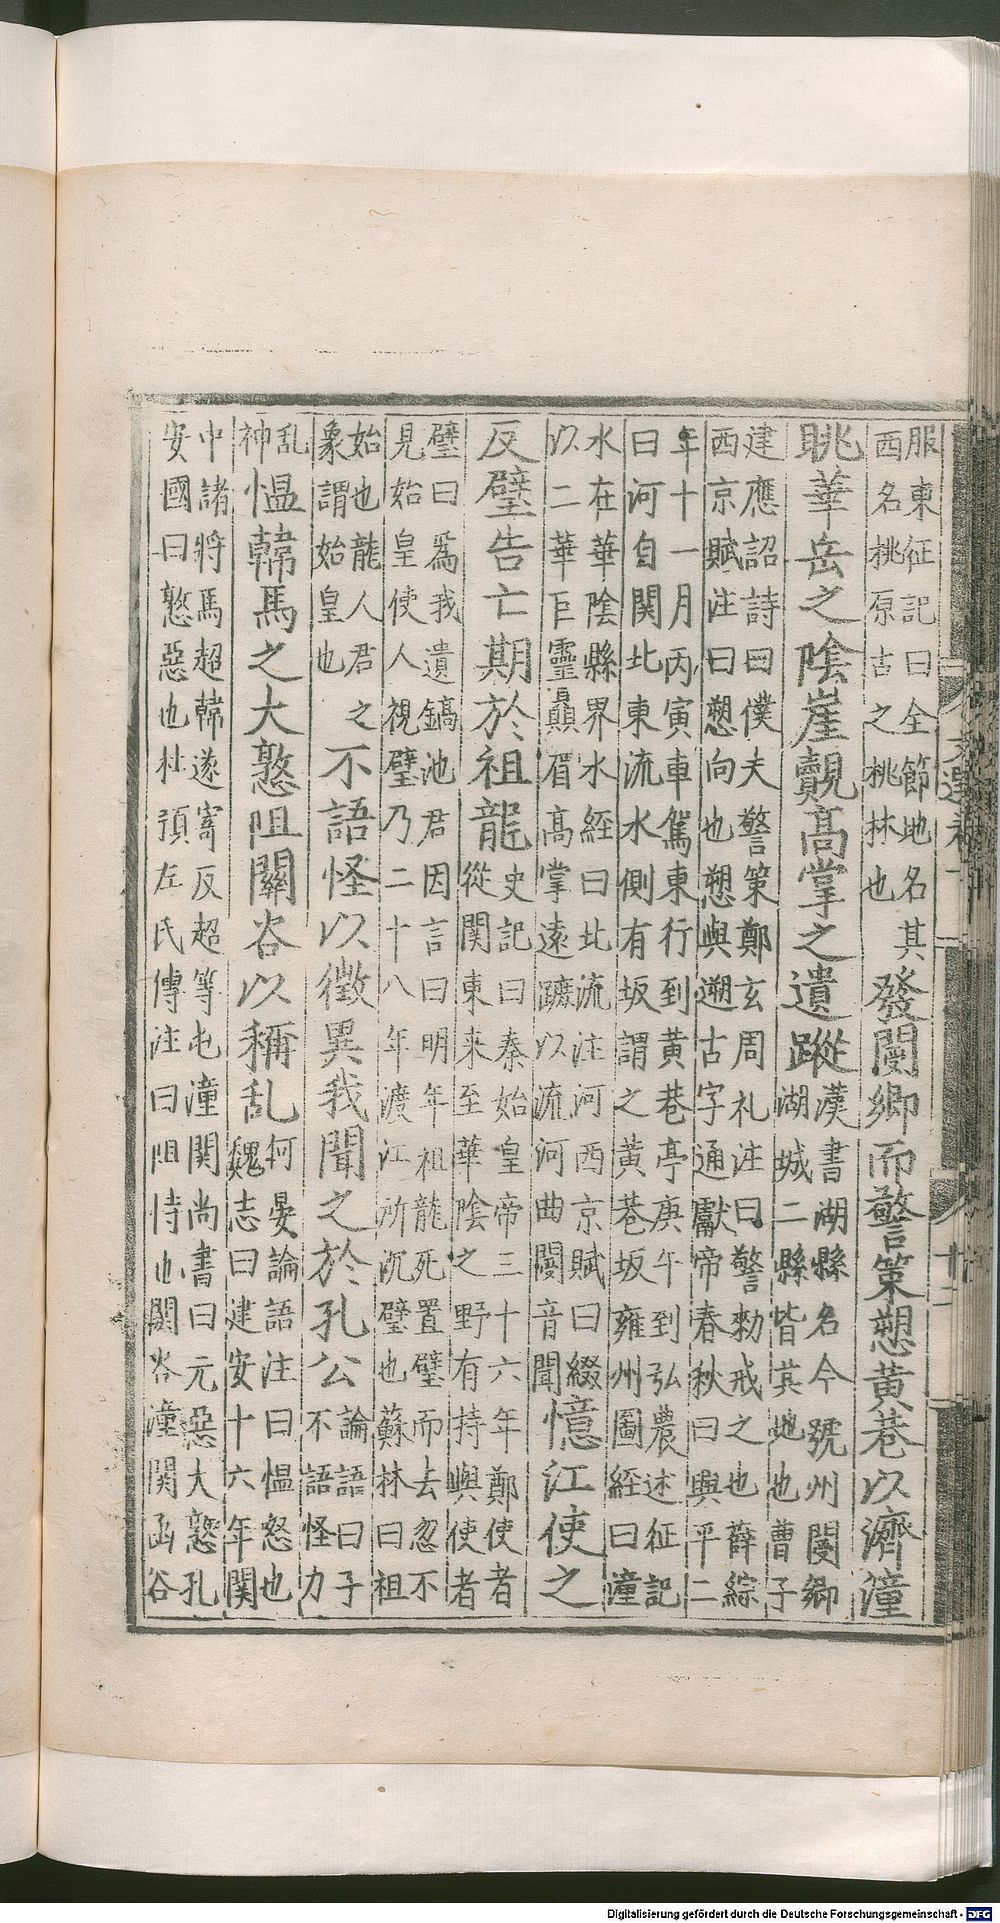 服東征記曰全節地名其
西名桃原古之桃林也
發閿鄉而警策愬黃巷以濟潼
眺華岳之陰崖覿高掌之遺蹤
漢書湖縣名今虢州閿鄉
湖城二縣皆其地也曹子
建應詔詩曰僕夫警策鄭玄周礼注曰警勑戒之也薛綜
西京賦注曰愬向也愬與遡古字通獻帝春秋曰興平二
年十一月丙寅車駕東行到黃巷亭庚午到弘農述征記
曰河自関北東流水側有坂謂之黃巷坂雍州圖經曰潼
水在華陰縣界水經曰北流注河西京賦曰綴
以二華巨靈贔屓高掌遠蹠以流河曲閿音聞
憶江使之
反璧告亡期於祖龍
史記曰秦始皇帝三十六年鄭使者
從関東来至華陰之野有持與使者
璧曰為我遺鎬池君因言曰明年祖龍死置璧而去忽不
見始皇使人視璧乃二十八年渡江所沉璧也蘇林曰祖
始也龍人君之
象謂始皇也
不語怪以徵異我聞之於孔公
論語曰子
不語怪力
乱
神
愠韓馬之大憝阻關谷以稱乱
何晏論語注曰愠怒也
魏志曰建安十六年関
中諸將馬超韓遂寄反超等屯潼関尚書曰元惡大憝孔
安國曰憝惡也杜預左氏傳注曰阻恃也関谷潼関函谷
Digitalisierung gefördert durch die Deutsche Forschungsgemeinschaft - DFG